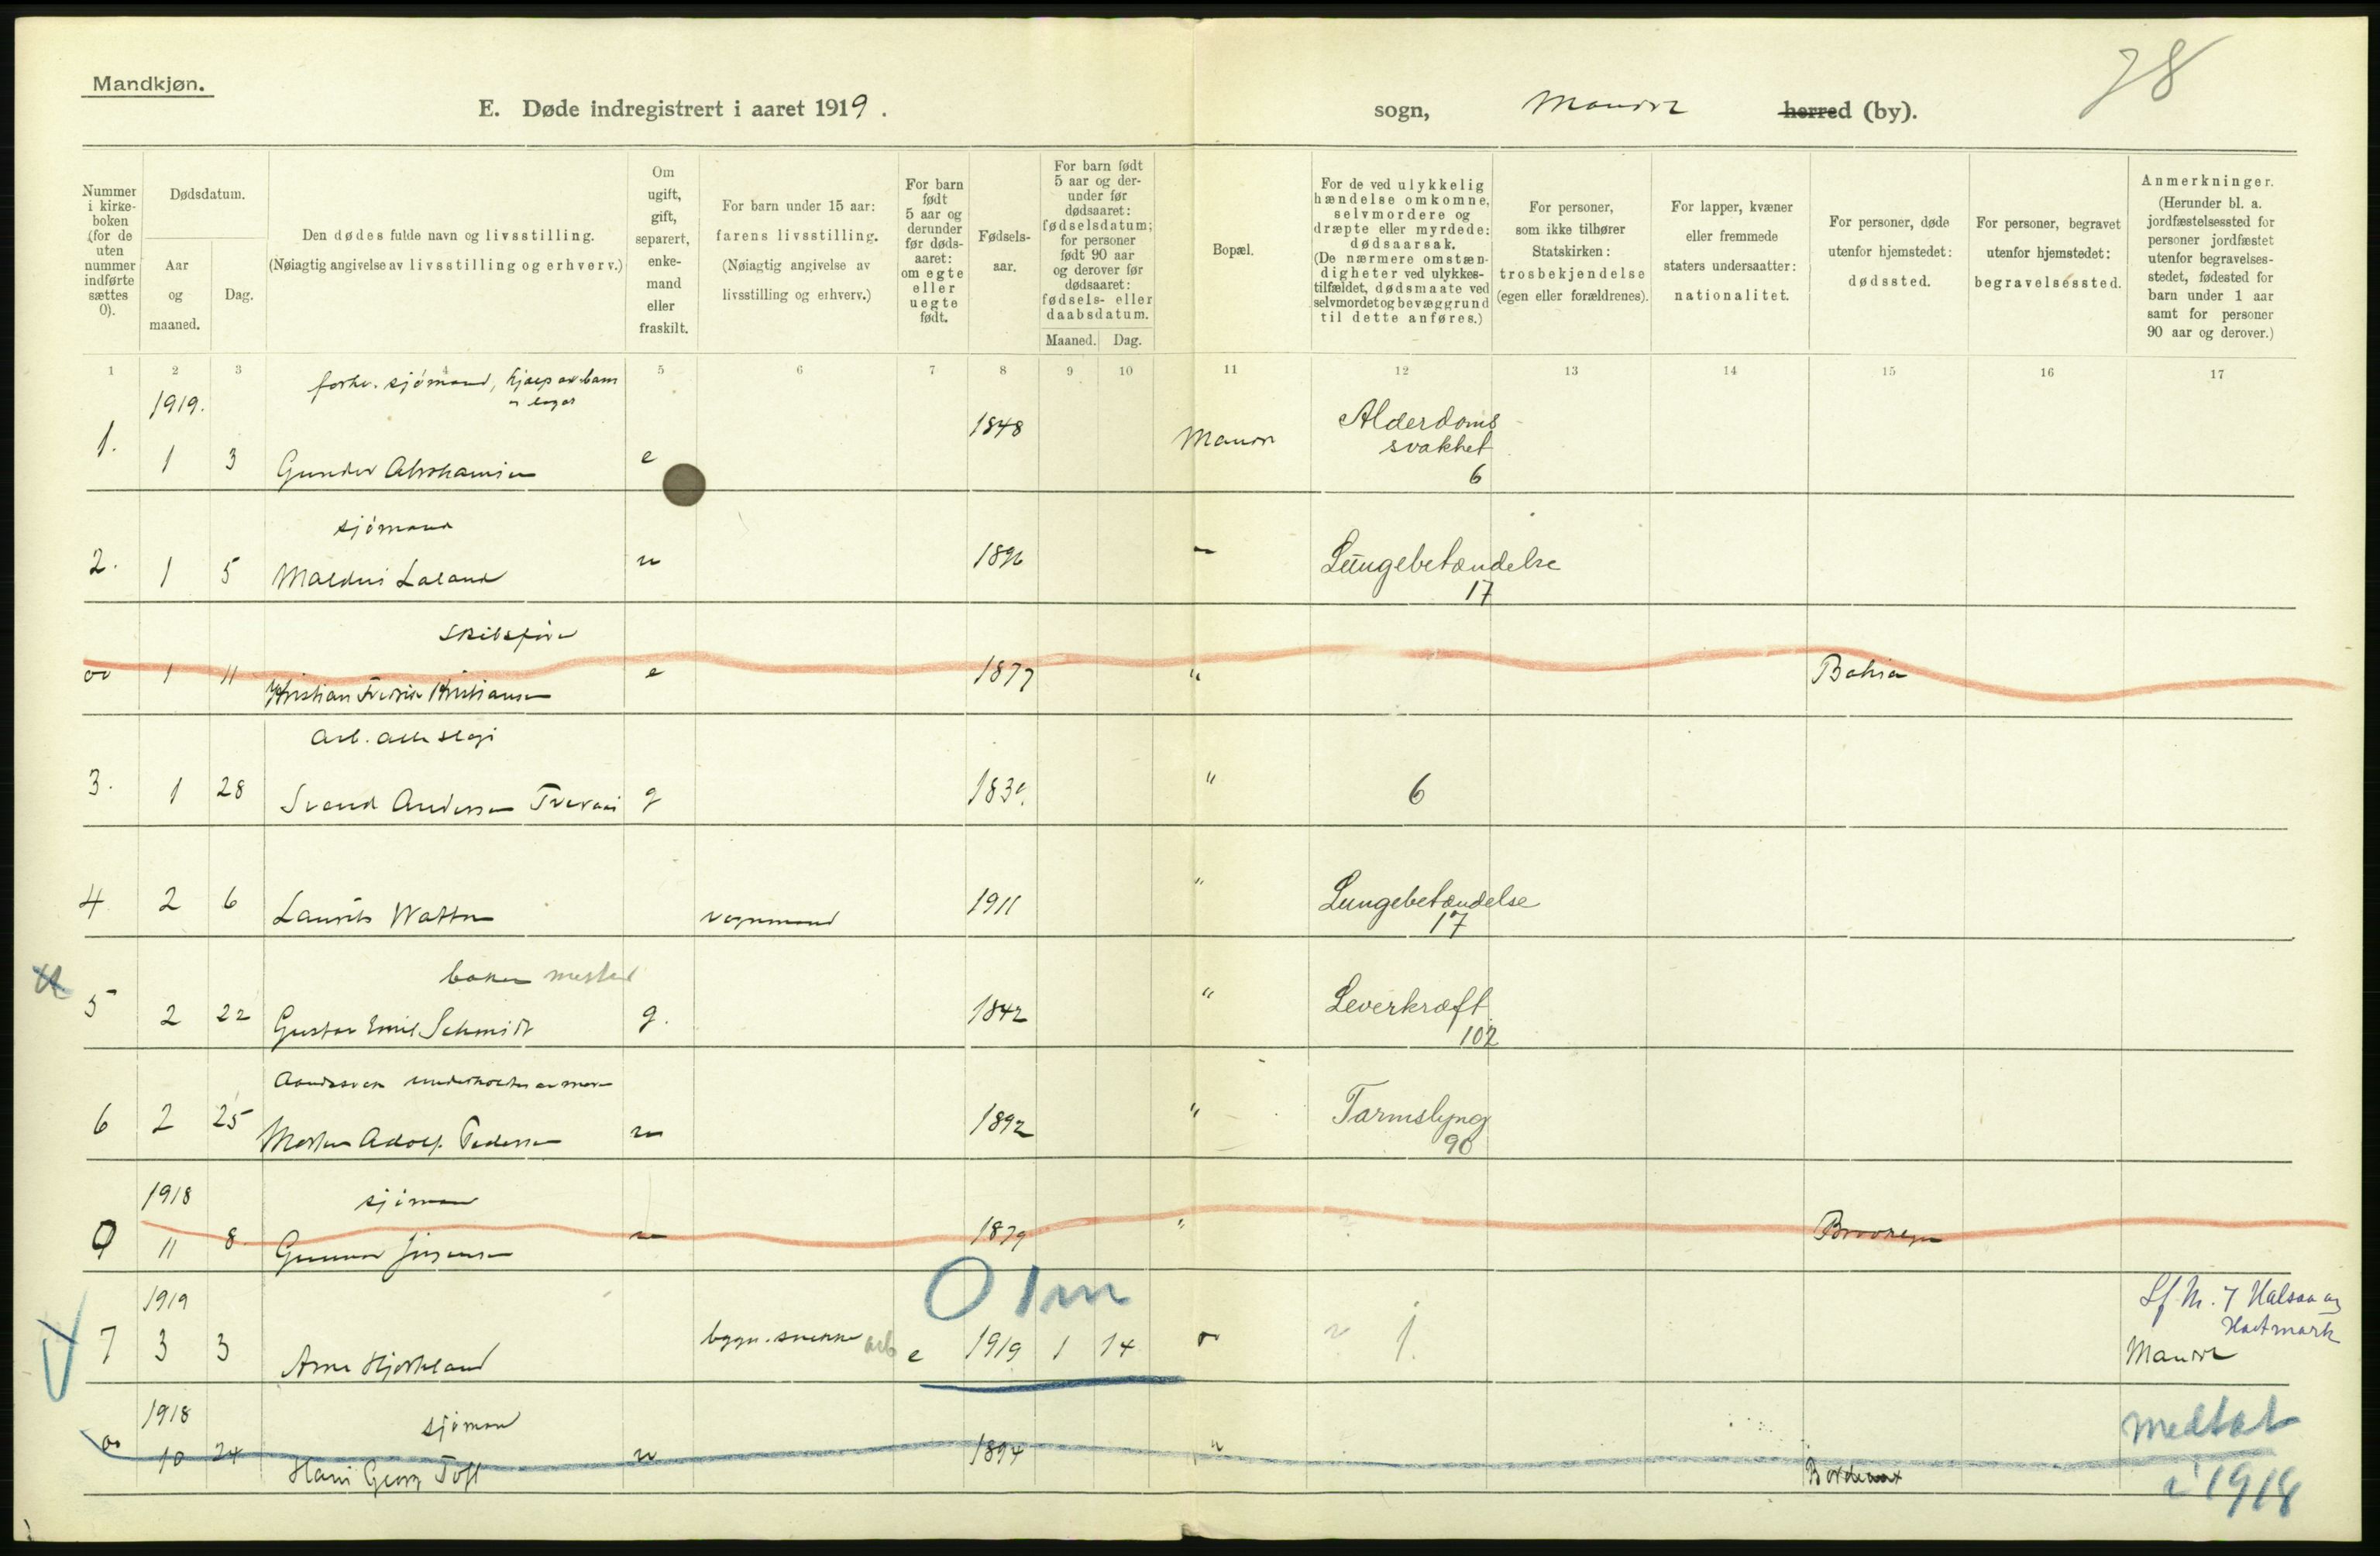 Mandkjøn.
78
E. Døde indregistrert i aaret 1919.
sogn, Mandal herred (by).
Nummer i kirke- boken (for de uten nummer indførte sættes 0).
Dødsdatum.
Aar og maaned.
Dag.
Den dødes fulde navn og livsstilling.
(Nøiagtig angivelse av livsstilling og erhverv.)
Om ugift, gift, separert, enke- mand eller fraskilt.
For barn under 15 aar: farens livsstilling.
(Nøiagtig angivelse av livsstilling og erhverv.)
For barn født 5 aar og derunder før døds- aaret: om egte eller uegte født.
Fødsels- aar.
For barn født 5 aar og der- under før dødsaaret: fødselsdatum; for personer født 90 aar og derover før dødsaaret: fødsels- eller daabsdatum.
Maaned. Dag.
Bopæl.
For de ved ulykkelig hændelse omkomne, selvmordere og dræpte eller myrdede: dødsaarsak.
(De nærmere omstæn- digheter ved ulykkes- tilfældet, dødsmaate ved selvmordet og bevæggrund til dette anføres.)
For personer, som ikke tilhører Statskirken: trosbekjendelse (egen eller forældrenes).
For lapper, kvæner eller fremmede staters undersaatter: nationalitet.
For personer, døde utenfor hjemstedet: dødssted.
For personer, begravet utenfor hjemstedet: begravelsessted.
Anmerkninger.
(Herunder bl. a. jordfæstelsessted for personer jordfæstet utenfor begravelses- stedet, fødested for barn under 1 aar samt for personer 90 aar og derover.)
1 2 3 4 5 6 7 8 9 10 11 12 13 14 15 16 17
1919. forhv. sjømand, hjælp av barn
1. 1 3 Gunder Abrahamsen e 1848 Mandal Alderdoms svakhet 6
sjømand
2. 1 5 Laland u 1896 " Lungebetændelse 17
Skibsfører
00 1 11 Kristian Fredrik Kristiansen e 1877 " Bahia
3. 1 28 Svend Andersen g 1839. " 6
4 2 6 Laurits Watne vognmand 1911 " Lungebetændelse 17
baker mester
5 2 22 Gustav Emil Schmidt g. 1842 " Leverkræft 102
Aandssvak underholdes av mor
6 2 25 Morten Adolf Pedersen u 1892 " Tarmslyng 90
1918 sjømand
0 11 8 Gunnar Jensen u 1879 " Brooklyn
0 1m
1919
7 3 3 Arne Hjorteland bygn. snekker arb e 1919 1 14 " 1.
Lf. M. 7 Halsaa og Hartmark
Mandal
1918 sjømand
00 10 24 Hans Georg Toft u 1894 " Bordeaux
medtat i 1918